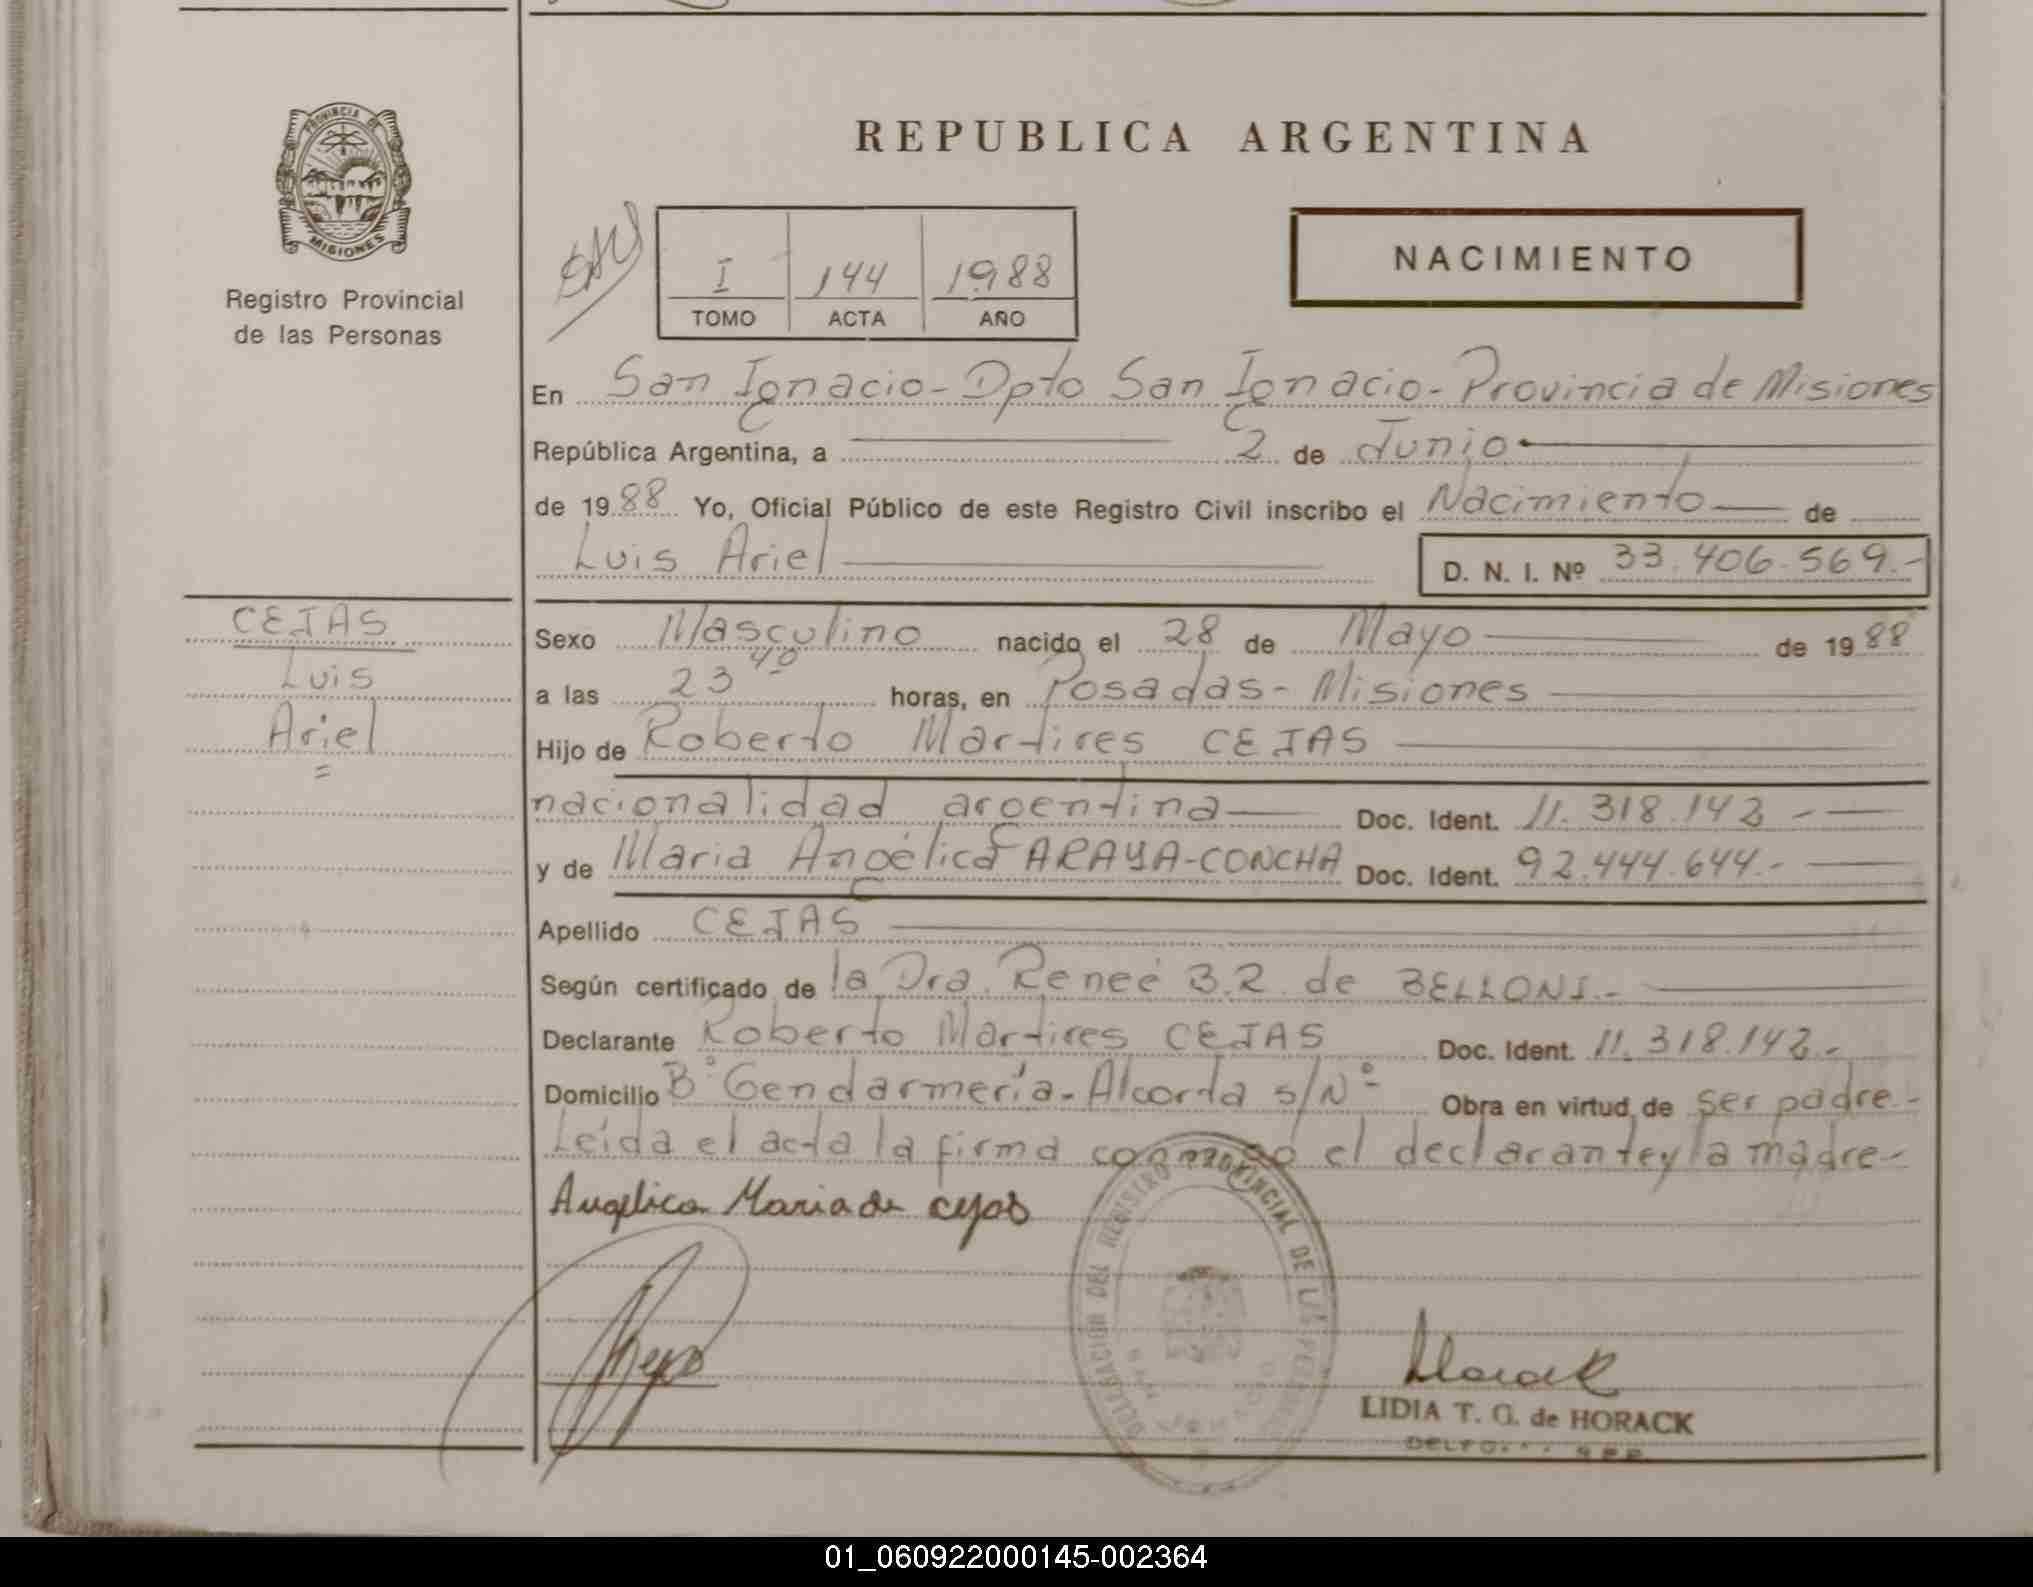 PROVINCIA DE
MISIONES
Registro Provincial
de las Personas
REPUBLICA ARGENTINA
I 144 1988
TOMO ACTA AÑO
NACIMIENTO
En San Ignacio - Dpto San Ignacio - Provincia de Misiones
República Argentina, a 2 de Junio
de 1988 Yo, Oficial Público de este Registro Civil inscribo el Nacimiento de
Luis Ariel D. N. I. Nº 33.406.569.-
CEJAS
Luis
Ariel
Sexo Masculino nacido el 28 de Mayo de 1988
a las 23 40 horas, en Posadas - Misiones
Hijo de Roberto Martires CEJAS
nacionalidad argentina Doc. Ident. 11.318.142 -
y de Maria Angélica ARAYA-CONCHA Doc. Ident. 92.444.644.-
Apellido CEJAS
Según certificado de la Dra. Reneé B.R. de BELLONI.-
Declarante Roberto Martires CEJAS Doc. Ident. 11.318.142.-
Domicilio Bº Gendarmería - Alcorta s/Nº - Obra en virtud de ser padre -
Leída el acta la firma conmigo el declarante y la madre -
Angelica Maria de cejas
DELEGACION DEL REGISTRO PROVINCIAL DE LAS PERSONAS
SAN IGNACIO
Horack
LIDIA T. G. de HORACK
01_060922000145-002364